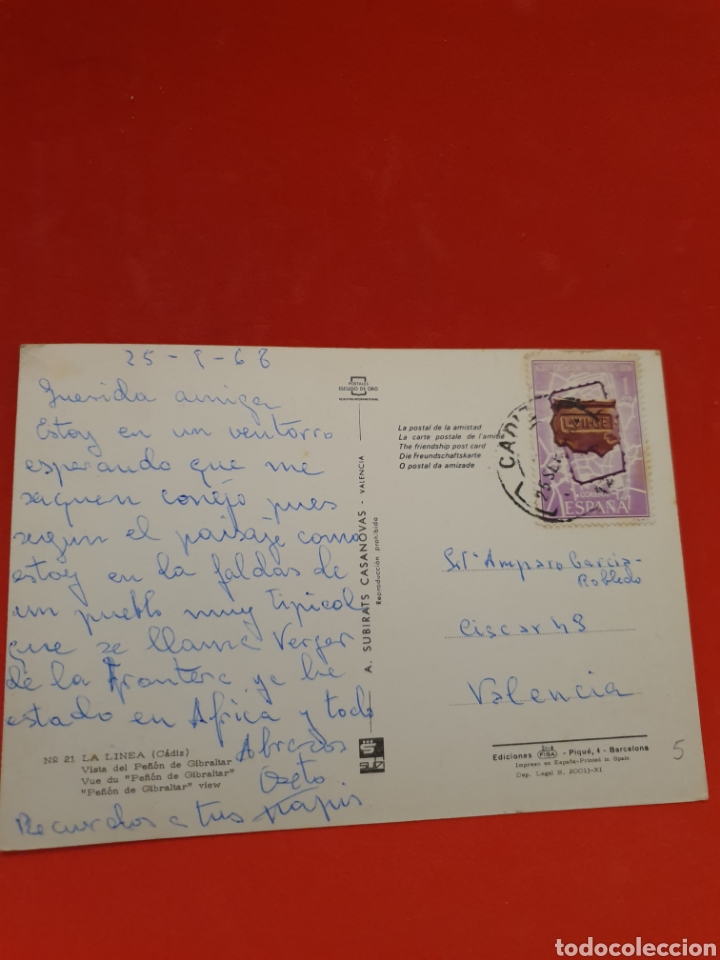 25-9-68
Querida amiga
Estoy en un ventorro
esperando que me
saquen conejo pues
segun el paisaje como
estoy en la faldas de
un pueblo muy tipical
que se llama Verger
de la Frontera ya he
estado en Africa y todo
Abrazos
Recuerdos a tus
POSTALES
ESCUDO DE ORO
A. SUBIRATS CASANOVAS - VALENCIA
Reproducción prohibida
Nº 21 LA LINEA (Cádiz)
Vista del Peñón de Gibraltar
Vue du "Peñón de Gibraltar"
"Peñón de Gibraltar" view
La postal de la amistad
La carte postale de l'amitié
The friendship post card
Die Freundschaftskarte
O postal da amizade
CADIZ
1
ESPAÑA
Srtª Amparo Garcia-
Robledo
Ciscar 49
Valencia
Ediciones FISA - Piqué, 4 - Barcelona
Impreso en España-Printed in Spain
Dep. Legal B. 20013-XI
5
todocoleccion